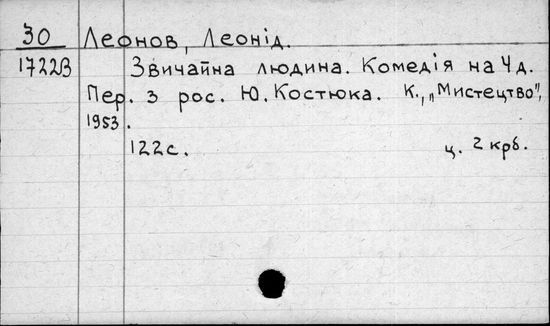 30 Леонов, Леонід.
1722В Звичайна людина. Комедія на 4 д.
Пер. з рос. Ю. Костюка. К., „Мистецтво",
1953.
122 с. ц. 2 крб.